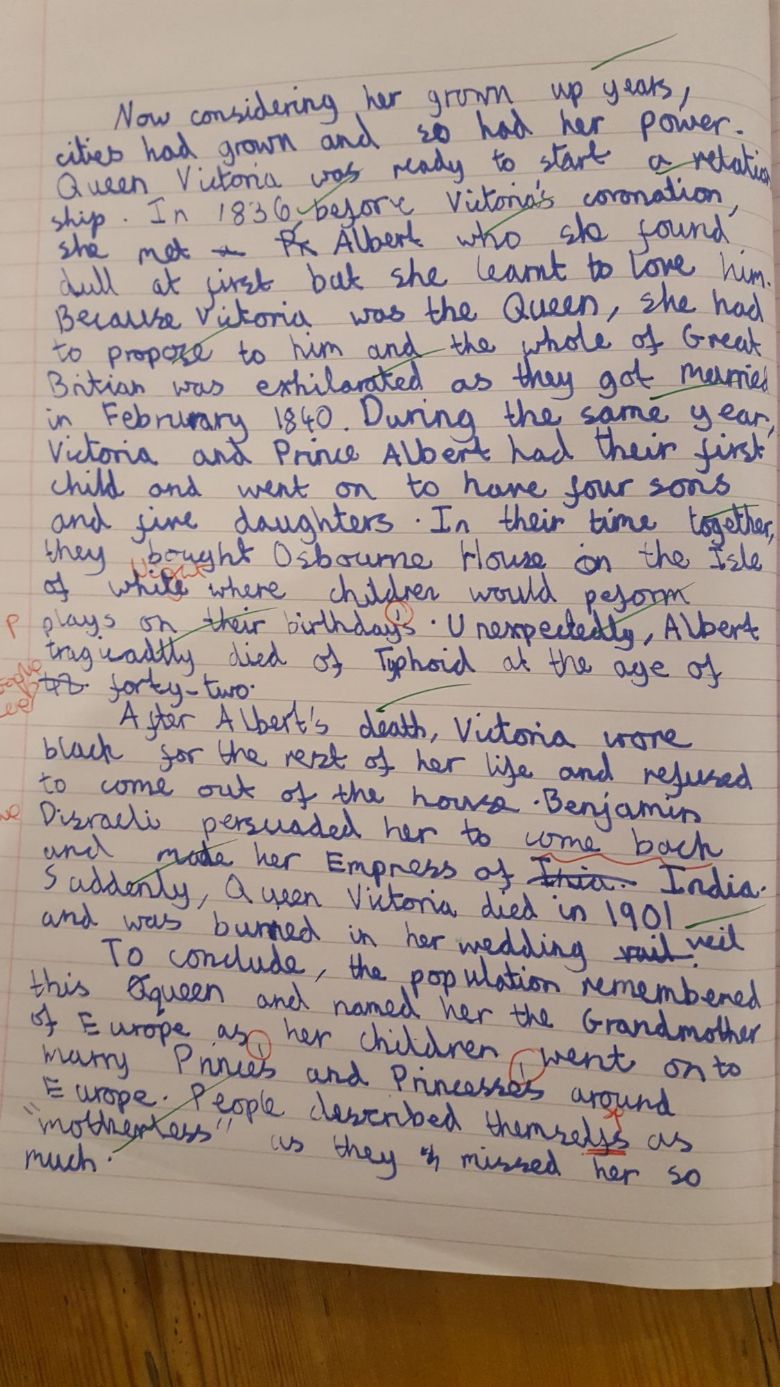 Now considering her grown up years,
cities had grown and so had her power.
Queen Victoria was ready to start a relation
ship. In 1836, before Victoria's coronation,
she met Albert who she found
dull at first but she learnt to love him.
Because Victoria was the Queen, she had
to propose to him and the whole of Great
Britian was exhilarated as they got married
in Februrary 1840. During the same year,
Victoria and Prince Albert had their first
child and went on to have four sons
and five daughters. In their time together,
they bought Osbourne House on the Isle
of while where children would peform
P plays on their birthday's. Unexpectedly, Albert
tragicadtly died of Typhoid at the age of
42. forty-two.
After Albert's death, Victoria wore
black for the rest of her life and refused
to come out of the house. Benjamin
Disraeli persuaded her to come back
and made her Empress of Inia. India.
Suddenly, Queen Victoria died in 1901
and was burried in her wedding vail veil
To conclude, the population remembered
this Queen and named her the Grandmother
of Europe as, her children, went on to
marry Princes and Princesses around
Europe. People described themselfs as
"motherless" as they missed her so
much.